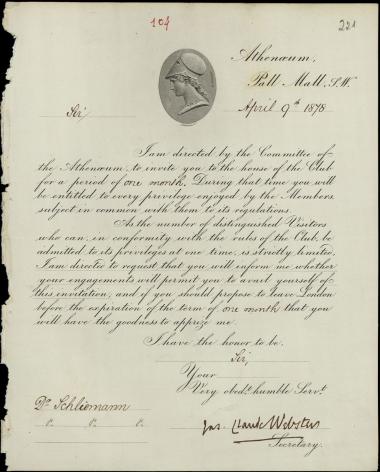 104
221
Athenæum,
Pall Mall, S.W.
April 9th 1878
Sir
I am directed by the Committee of
the Athenæum, to invite you to the house of the Club
for a period of one month. During that time you will
be entitled to every privilege enjoyed by the Members,
subject in common with them to its regulations.
As the number of distinguished Visitors
who can, in conformity with the rules of the Club, be
admitted to its privileges at one time, is strictly limited,
I am directed to request that you will inform me whether
your engagements will permit you to avail yourself of
this invitation, and if you should propose to leave London
before the expiration of the term of one month that you
will have the goodness to apprize me.
I have the honor to be,
Sir,
Your
Very obedt. humble Servt.
Dr Schliemann
Jas. Claude Webster
Secretary.